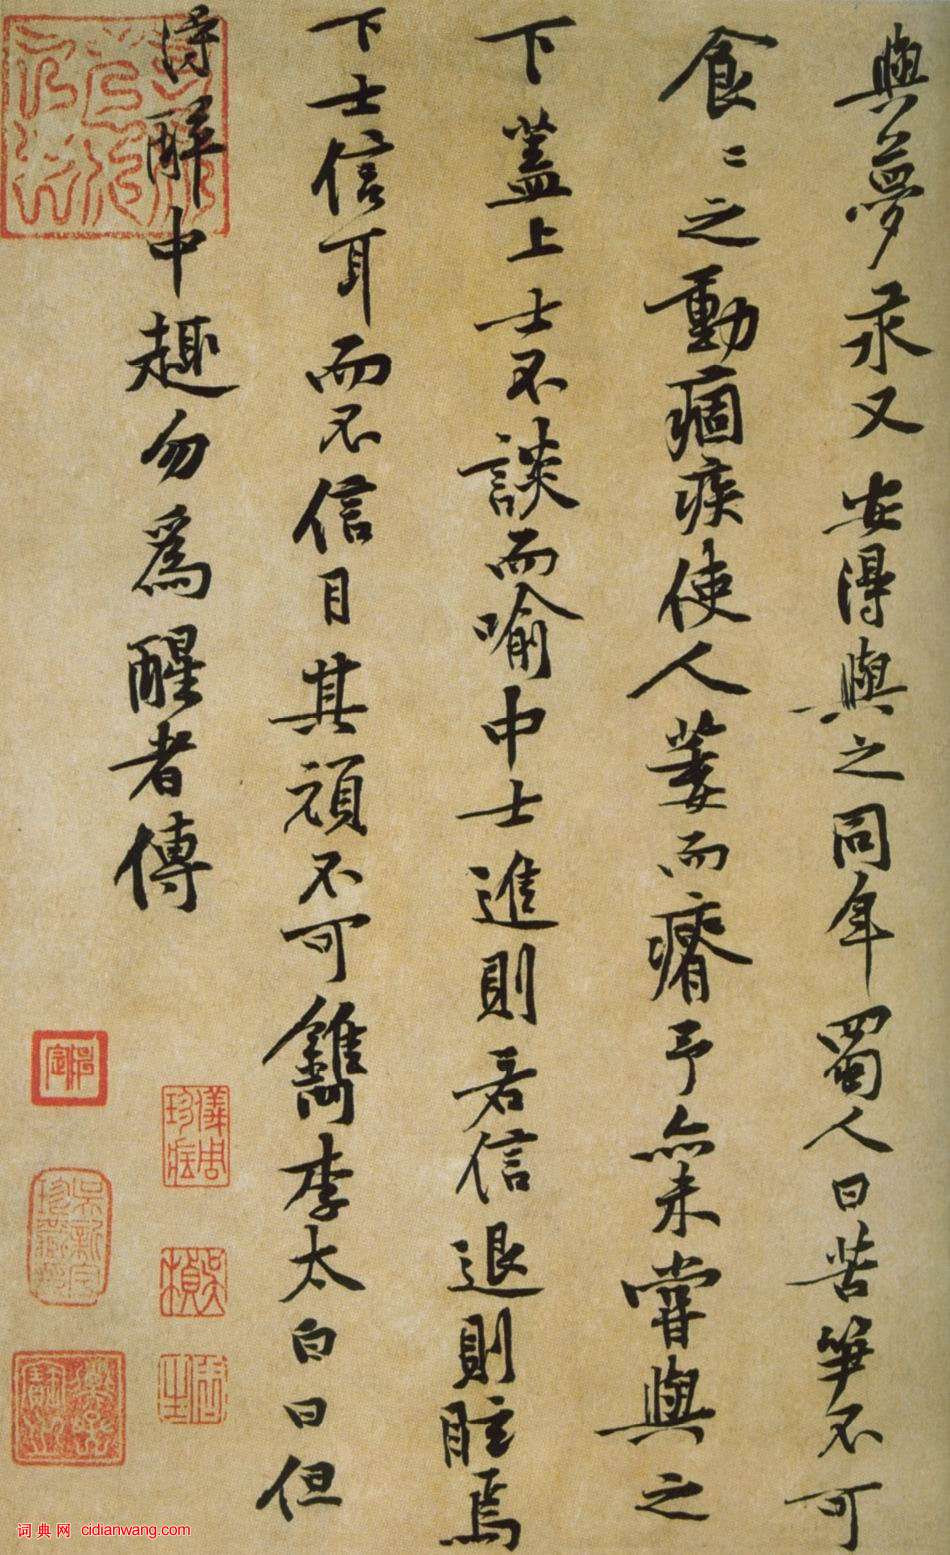 與夢永又安得與之同年蜀人曰苦笋不可
食〻之動痼疾使人萎而瘠予亦未嘗與之
下蓋上士不談而喻中士進則若信退則眩焉
下士信耳而不信目其頑不可鐫李太白曰但
得醉中趣勿爲醒者傳
儀周珍藏
吳楨
吳新宇珍藏印
词典网 cidianwang.com